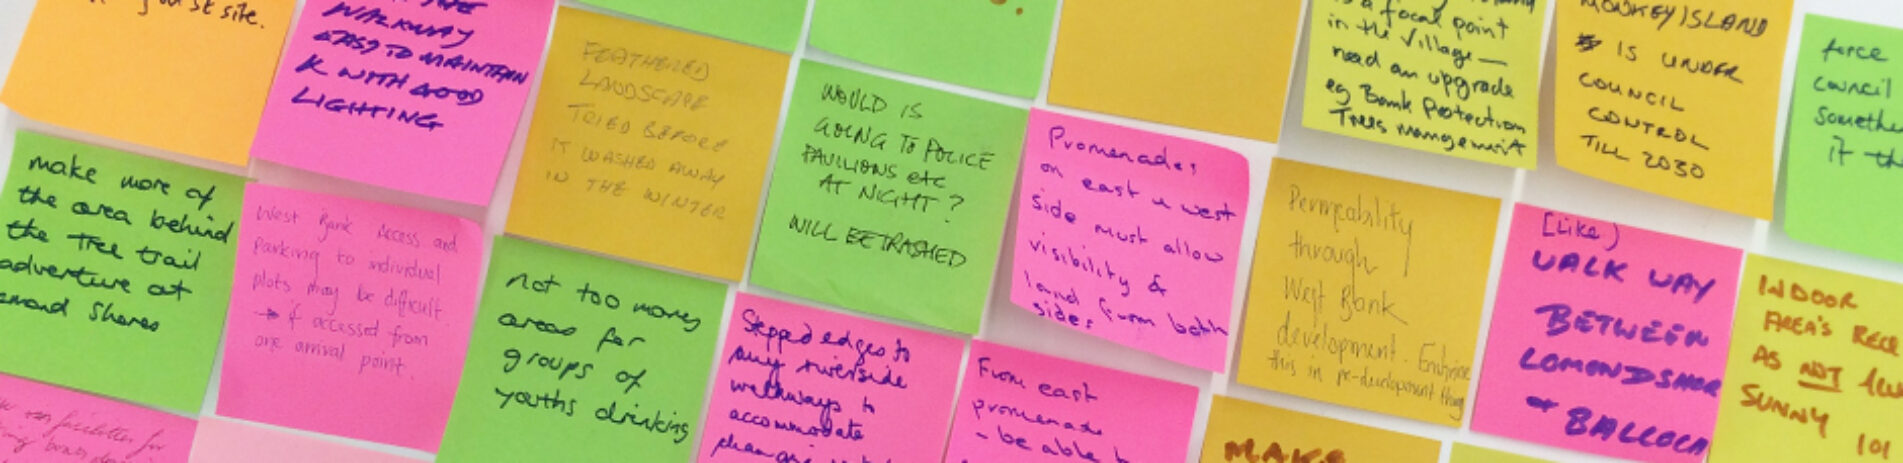 st site.
WALKWAY
EASY TO MAINTAIN
& WITH GOOD
LIGHTING
FEATHERED
LANDSCAPE
TRIED BEFORE
IT WASHED AWAY
IN THE WINTER
WOULD IS
GOING TO POLICE
PAVILIONS etc
AT NIGHT?
WILL BE TRASHED
Promenades
on east & west
side must allow
visibility &
land from both
sides
is a focal point
in the Village —
need an upgrade
eg Bank Protection
Trees management
MONKEY ISLAND
IS UNDER
COUNCIL
CONTROL
TILL 2030
force
council
someth
if th
make more of
the area behind
the Tree trail
adventure at
Lomond Shores
West Bank Access and
parking to individual
plots may be difficult
→ if accessed from
one arrival point.
not too many
areas for
groups of
youths drinking
Stepped edges to
any riverside
walkways to
accommodate
From east
promenade
- be able t
Permeability
through
West Bank
development. Enshrine
this in pre-development
(Like)
WALK WAY
BETWEEN
LOMONDSHOR
& BALLOCH
INDOOR
AREA'S
AS NOT
SUNNY
101
MAKE
facilities for